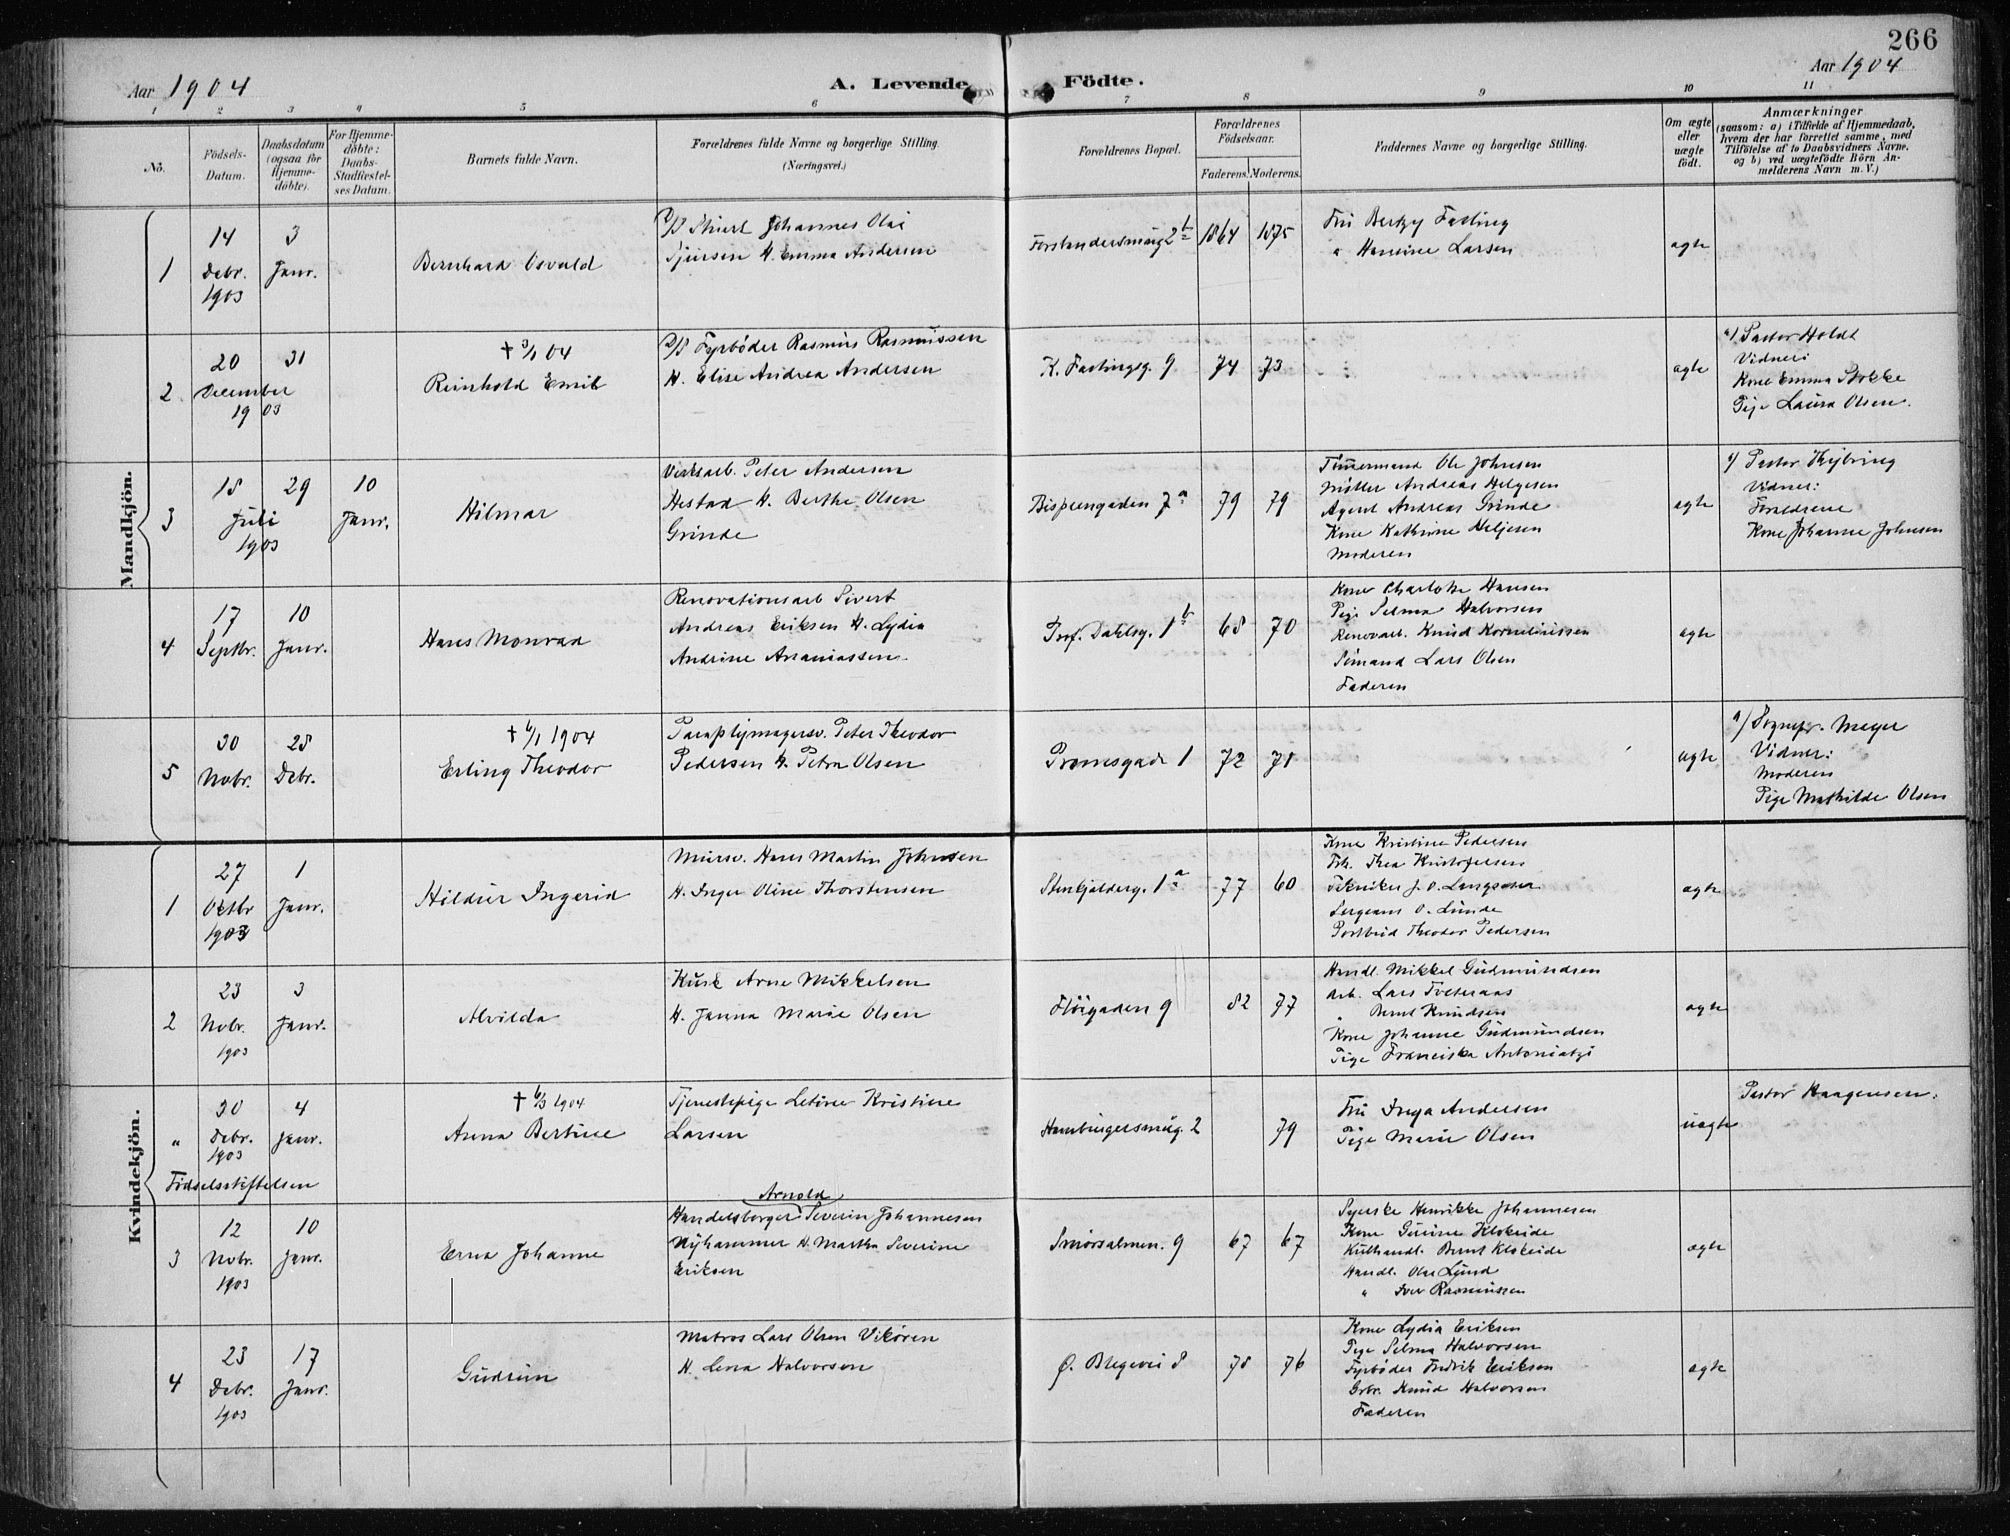 266
Aar 1904
A. Levende
Födte.
Aar 1904
1 2 3 4 5 6 7 8 9 10 11
No.
Födsels-Datum.
Daabsdatum (ogsaa for Hjemme-döbte).
For Hjemme-döbte: Daabs-Stadfæstel-ses Datum.
Barnets fulde Navn.
Forældrenes fulde Navne og borgerlige Stilling. (Næringsvei.)
Forældrenes Bopæl.
Forældrenes Födselsaar.
Faderens. Moderens.
Faddernes Navne og borgerlige Stilling.
Om ægte eller uægte födt.
Anmærkninger
(saasom: a) i Tilfælde af Hjemmedaab, hvem der har forrettet samme, med Tilföielse af to Daabsvidners Navne. og b) ved uægtefödte Börn An-melderens Navn m. V.)
Mandkjön.
1
14 Debr. 1903
3 Janr.
Bernhard Osvald
Johannes Olai
H. Emma Andersen
Forstandersmug 2b
1864 1875
Fru Fasting
" Hansine Larsen
ægte
2
20 December 1903
31
† 3/1 04
Reinhold Emil
Fyrbøder Rasmus Rasmussen
H. Elise Andrea Andersen
K. Fastingsg. 9
74 73
ægte
a/ Pastor Holdt
Vidner:
Kone Emma Stokke
Pige Laura Olsen.
3
18 Juli 1903
29
10 Janr.
Hilmar
Verksarb. Peter Andersen
Hestad H. Berthe Olsen
Grinde
Bispeengaden 7a
79 79
Tømmermand Ole Johnsen
Møller Andreas Helgesen
Agent Andreas Grinde
Kone Kathrine Heljesen
Moderen
ægte
a/ Pastor
Vidner:
Forældrene
Kone Johanne Johnsen
4
17 Septbr.
10 Janr.
Hans Monrad
Renovationsarb Sivert
Andreas Eriksen H. Lydia
Andrine Ananiassen.
Prof. Dahlsg. 1b
68 70
Kone Charlotte Hansen
Pige Selma Halvorsen
Renovarb. Knud Korneliussen
Sømand Lars Olsen
Faderen
ægte
5
30 Nobr.
28 Debr.
† 6/1 1904
Erling Theodor
Paraplymagersv. Peter Theodor
Pedersen H. Petra Olsen
Promsgade 1
72 71
ægte
a/ Sognepr. Meyer
Vidner:
Moderen
Pige Mathilde Olsen
Kvindekjön.
1
27 Oktbr 1903
1 Janr.
Hildur Ingerid
Mursv. Hans Martin Johnsen
H. Inger Oline Thorstensen
Stenkjelderg. 1a
77 60
Kone Kristine Pedersen
Frk. Thea Kristofersen
Tekniker J. O.
Sergeant O. Lunde
Postbud Theodor Pedersen
ægte
2
23 Nobr. 1903
3 Janr.
Alvilda
Kusk Arne Mikkelsen
H. Janna Marie Olsen
Fløigaden 9
82 77
Handl. Mikkel Gudmundsen
Arb. Lars Tveteraas
" Bernt Knudsen
Kone Johanne Gudmundsen
Pige Franciska
ægte
"
30 Debr. 1903
4 Janr.
Fødselsstiftelsen
† 6/3 1904
Anna Bertine
Tjenestepige Letine Kristine
Larsen
Hamburgersmug. 2
79
Fru Inga Andersen
Pige Marie Olsen
uægte
Pastor Haagensen.
3
12 Nobr. 1903
10 Janr.
Erna Johanne
Arnold
Handelsborger Severin Johannesen
Nyhammer H. Martha Severine
Eriksen
Smørsalmen. 9
67 67
Syerske Henrikke Johannesen
Kone Gurine Kloheide
Kulhandl. Bernt Kloheide
Handl. Olai Lund
" Iver Rasmussen
ægte
4
23 Debr. 1903
17 Janr.
Gudrun
Matros Lars Olsen Vikøren
H. Lena Halvorsen
Ø. Blegevei 8
78 76
Kone Lydia Eriksen
Pige Selma Halvorsen
Fyrbøder Fredrik Eriksen
Grbr. Knud Halvorsen
Faderen
ægte